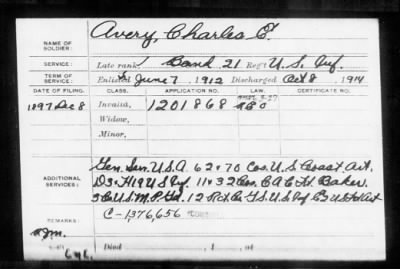 Avery, Charles E.
NAME OF SOLDIER:
SERVICE: Late rank, Band 21 Reg't U.S. Inf.
TERM OF SERVICE: Enlisted June 7, 1912 Discharged Oct 8, 1914
DATE OF FILING. CLASS. APPLICATION NO. LAW. CERTIFICATE NO.
1897 Dec 8 Invalid, 1201868
Widow,
Minor,
ADDITIONAL SERVICES: Gen. Ser. U.S.A. 62 + 70 Cos. U.S. Coast Art.
D 3 + H 19 U.S. Inf. 11 + 32 Cos. C.A.C. Ft. Baker
12 Rct. Co.
REMARKS: C-1,376,656
Died , 1 , at